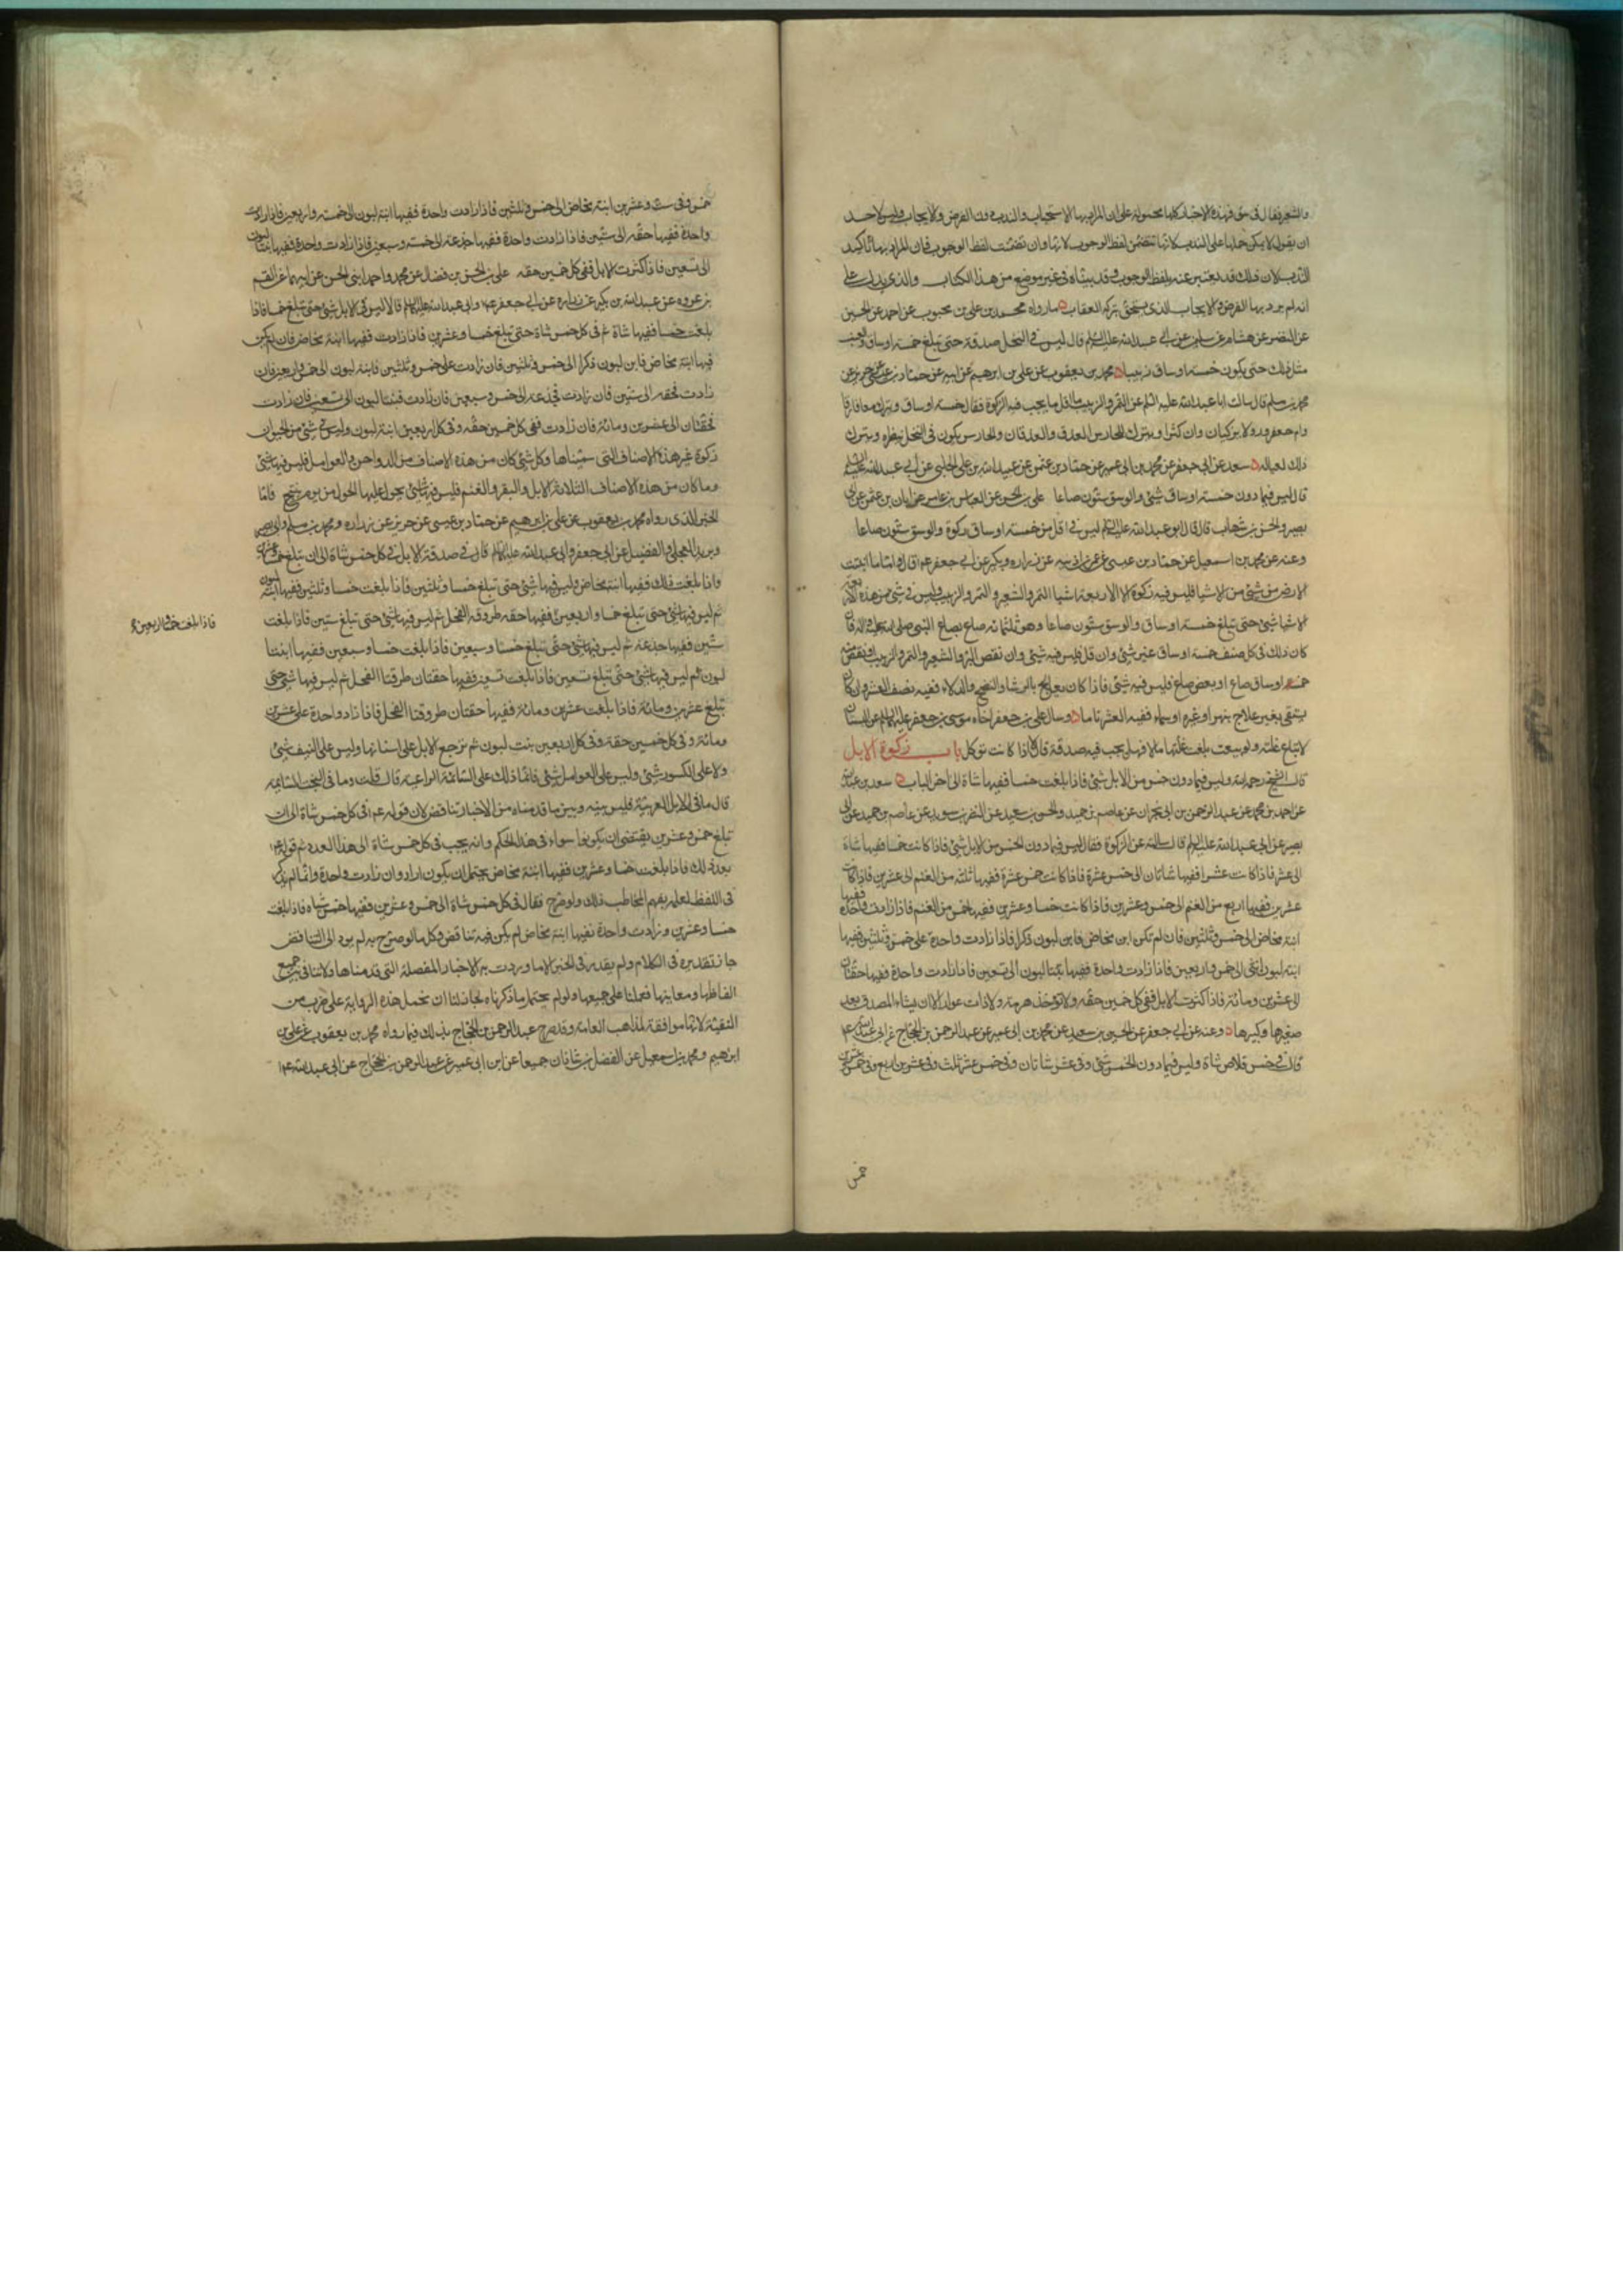 والشعير فقال في حق فهذه الاخبار كلها محمولة على ان المراد بها الاستحباب والندب دون الفرض والايجاب وليس لاحد
ان يقول لا يمكن حملها على الندب لانها تتضمن لفظ الوجوب لانها وان تضمنت لفظ الوجوب فان المراد بها تاكيد
الندب لان ذلك قد يعبر عنه بلفظ الوجوب وقد بيناه في غير موضع من هذا الكتاب والذي يدل على
انه لم يرد بها الفرض والايجاب الذي يستحق بتركه العقاب ما رواه محمد بن علي بن محبوب عن احمد عن الحسين
عن النضر عن هشام عن سليمن عن ابي عبد الله عليه السلم قال ليس في النخل صدقة حتى تبلغ خمسة اوساق والعنب
مثل ذلك حتى يكون خمسة اوساق زبيبا محمد بن يعقوب عن علي بن ابرهيم عن ابيه عن حماد بن عيسى عن حريز عن
محمد بن مسلم قال سالت ابا عبد الله عليه السلم عن التمر والزبيب ما اقل ما يجب فيه الزكوة فقال خمسة اوساق ويترك معافارة
وام جعرور ولا يزكيان وان كثرا ويترك للحارس العذق والعذقان والحارس يكون في النخل ينظره ويترك
ذلك لعياله سعد عن ابي جعفر عن محمد بن ابي عمير عن حماد بن عثمن عن عبيد الله بن علي الحلبي عن ابي عبد الله عليه السلم
قال ليس فيما دون خمسة اوساق شئ والوسق ستون صاعا علي بن الحسن عن العباس بن عامر عن ابان بن عثمن عن ابي
بصير والحسن بن شهاب قالا قال ابو عبد الله عليه السلم ليس في اقل من خمسة اوساق زكوة والوسق ستون صاعا
وعنه عن محمد بن اسمعيل عن حماد بن عيسى عن عمر بن اذينه عن زراره وبكير عن ابي جعفر عم قال واما ما انبتت
الارض من شئ من الاشيا فليس فيه زكوة الا الاربعة اشيا البر والشعير والتمر والزبيب وليس في شئ من هذه الاربعة
الاشيا شئ حتى تبلغ خمسة اوساق والوسق ستون صاعا وهو ثلثمائة صاع بصاع النبي صلى الله عليه واله فان
كان ذلك في كل صنف خمسة اوساق غير شئ وان قل فليس فيه شئ وان نقص البر والشعير والتمر والزبيب او نقص من
خمسة اوساق صاع او بعض صاع فليس فيه شئ فاذا كان يعالج بالرشا والنضح والدلاء ففيه نصف العشر وان كان
يسقى بغير علاج بنهر او غيره او سماء ففيه العشر تاما وسال علي بن جعفر اخاه موسى بن جعفر عليهما السلم عن البستان
لا تباع غلته ولو بيعت بلغت غلتها مالا فهل يجب فيه صدقة قال لا اذا كانت توكل باب زكوة الابل
قال الشيخ رحمه الله وليس فيما دون خمس من الابل شئ فاذا بلغت خمسا ففيها شاة الى اخر الباب سعد بن عبد الله
عن احمد بن محمد عن عبد الرحمن بن ابي نجران عن عاصم بن حميد والحسين بن سعيد عن النضر بن سويد عن عاصم بن حميد عن ابي
بصير عن ابي عبد الله عليه السلم قال سالته عن الزكوة فقال ليس فيما دون الخمس من الابل شئ فاذا كانت خمسا ففيها شاة
الى عشر فاذا كانت عشرا ففيها شاتان الى خمس عشرة فاذا كانت خمس عشرة ففيها ثلثه من الغنم الى عشرين فاذا كانت
عشرين ففيها اربع من الغنم الى خمس وعشرين فاذا كانت خمسا وعشرين ففيها خمس من الغنم فاذا زادت واحدة ففيها
ابنة مخاض الى خمس وثلثين فان لم تكن ابن مخاض فابن لبون ذكر فاذا زادت واحدة على خمس وثلثين ففيها
ابنة لبون انثى الى خمس واربعين فاذا زادت واحدة ففيها بنتا لبون الى تسعين فاذا زادت واحدة ففيها حقتان
الى عشرين ومائة فاذا كثرت الابل ففي كل خمسين حقه ولا تؤخذ هرمة ولا ذات عوار الا ان يشاء المصدق يعد
صغيرها وكبيرها وعنه عن ابي جعفر عن الحسين بن سعيد عن محمد بن ابي عمير عن عبد الرحمن بن الحجاج عن ابي عبد الله ع
قال في خمس قلاص شاة وليس فيما دون الخمس شئ وفي عشر شاتان وفي خمس عشر ثلث وفي عشرين اربع وفي خمس وعشرين
خمس
خمس وفي ست وعشرين ابنة مخاض الى خمس وثلثين فاذا زادت واحدة ففيها ابنة لبون الى خمسة واربعين فاذا زادت
واحدة ففيها حقه الى ستين فاذا زادت واحدة ففيها جذعه الى خمسة وسبعين فاذا زادت واحدة ففيها بنتا لبون
الى تسعين فاذا كثرت الابل ففي كل خمسين حقه علي بن الحسن بن فضال عن محمد واحمد ابني الحسن عن ابيهما عن القسم
بن عروه عن عبد الله بن بكير عن زراره عن ابي جعفر عم وابي عبد الله عليهما السلم قالا ليس في الابل شئ حتى تبلغ خمسا فاذا
بلغت خمسا ففيها شاة ثم في كل خمس شاة حتى تبلغ خمسا وعشرين فاذا زادت ففيها ابنة مخاض فان لم يكن
فيها ابنة مخاض فابن لبون ذكر الى خمس وثلثين فان زادت على خمس وثلثين فابنة لبون الى خمس واربعين فان
زادت فحقه الى ستين فان زادت فجذعه الى خمس وسبعين فان زادت فبنتا لبون الى تسعين فان زادت
فحقتان الى عشرين ومائة فان زادت ففي كل خمسين حقه وفي كل اربعين ابنة لبون وليس في شئ من الحيوان
زكوة غير هذه الاصناف التي سميناها وكل شئ كان من هذه الاصناف من الدواجن والعوامل فليس فيها شئ
وما كان من هذه الاصناف الثلاثة الابل والبقر والغنم فليس فيها شئ حتى يحول عليها الحول من يوم ينتج فاما
الخبر الذي رواه محمد بن يعقوب عن علي بن ابرهيم عن حماد بن عيسى عن حريز عن زراره ومحمد بن مسلم وابي بصير
وبريد العجلي والفضيل عن ابي جعفر وابي عبد الله عليهما السلم قالا في صدقة الابل في كل خمس شاة الى ان تبلغ خمسا وعشرين
واذا بلغت ذلك ففيها ابنة مخاض وليس فيها شئ حتى تبلغ خمسا وثلثين فاذا بلغت خمسا وثلثين ففيها ابنة لبون
ثم ليس فيها شئ حتى تبلغ خمسا واربعين ففيها حقه طروقة الفحل ثم ليس فيها شئ حتى تبلغ ستين فاذا بلغت
فاذا بلغت خمسا واربعين
ستين ففيها جذعه ثم ليس فيها شئ حتى تبلغ خمسا وسبعين فاذا بلغت خمسا وسبعين ففيها ابنتا
لبون ثم ليس فيها شئ حتى تبلغ تسعين فاذا بلغت تسعين ففيها حقتان طروقتا الفحل ثم ليس فيها شئ حتى
تبلغ عشرين ومائة فاذا بلغت عشرين ومائة ففيها حقتان طروقتا الفحل فاذا زاد واحدة على عشرين
ومائة وفي كل خمسين حقة وفي كل اربعين بنت لبون ثم ترجع الابل على اسنانها وليس على النيف شئ
ولا على الكسور شئ وليس على العوامل شئ فانما ذلك على السائمة الراعيه قال قلت وما في البخت السائمه
قال ما في الابل العربية فليس بينه وبين ما قدمناه من الاخبار تناقض لان قوله عم في كل خمس شاة الى ان
تبلغ خمس وعشرين يقتضي ان يكونوا سواء في هذا الحكم وانه يجب في كل خمس شاة الى هذا العدد ثم قوله عم
بعد ذلك فاذا بلغت خمسا وعشرين ففيها ابنة مخاض يحتمل ان يكون اراد وان زادت واحدة وانما لم يذكر
في اللفظ لعلمه بفهم المخاطب ذلك ولو صرح فقال في كل خمس شاة الى خمس وعشرين ففيها خمس شياه فاذا بلغت
خمسا وعشرين وزادت واحدة ففيها ابنة مخاض لم يكن فيه تناقض وكل ما لو صرح به لم يود الى التناقض
جاز تقديره في الكلام ولم يقدر في الخبر الا ما وردت به الاخبار المفصلة التي قدمناها ولا تنافي بين جميع
الفاظها ومعانيها فعملنا على جميعها ولو لم يحتمل ما ذكرناه لجاز لنا ان نحمل هذه الرواية على ضرب من
التقية لانها موافقة لمذاهب العامة وقد صرح عبد الرحمن بن الحجاج بذلك فيما رواه محمد بن يعقوب عن علي بن
ابرهيم ومحمد بن اسمعيل عن الفضل بن شاذان جميعا عن ابن ابي عمير عن عبد الرحمن بن الحجاج عن ابي عبد الله ع